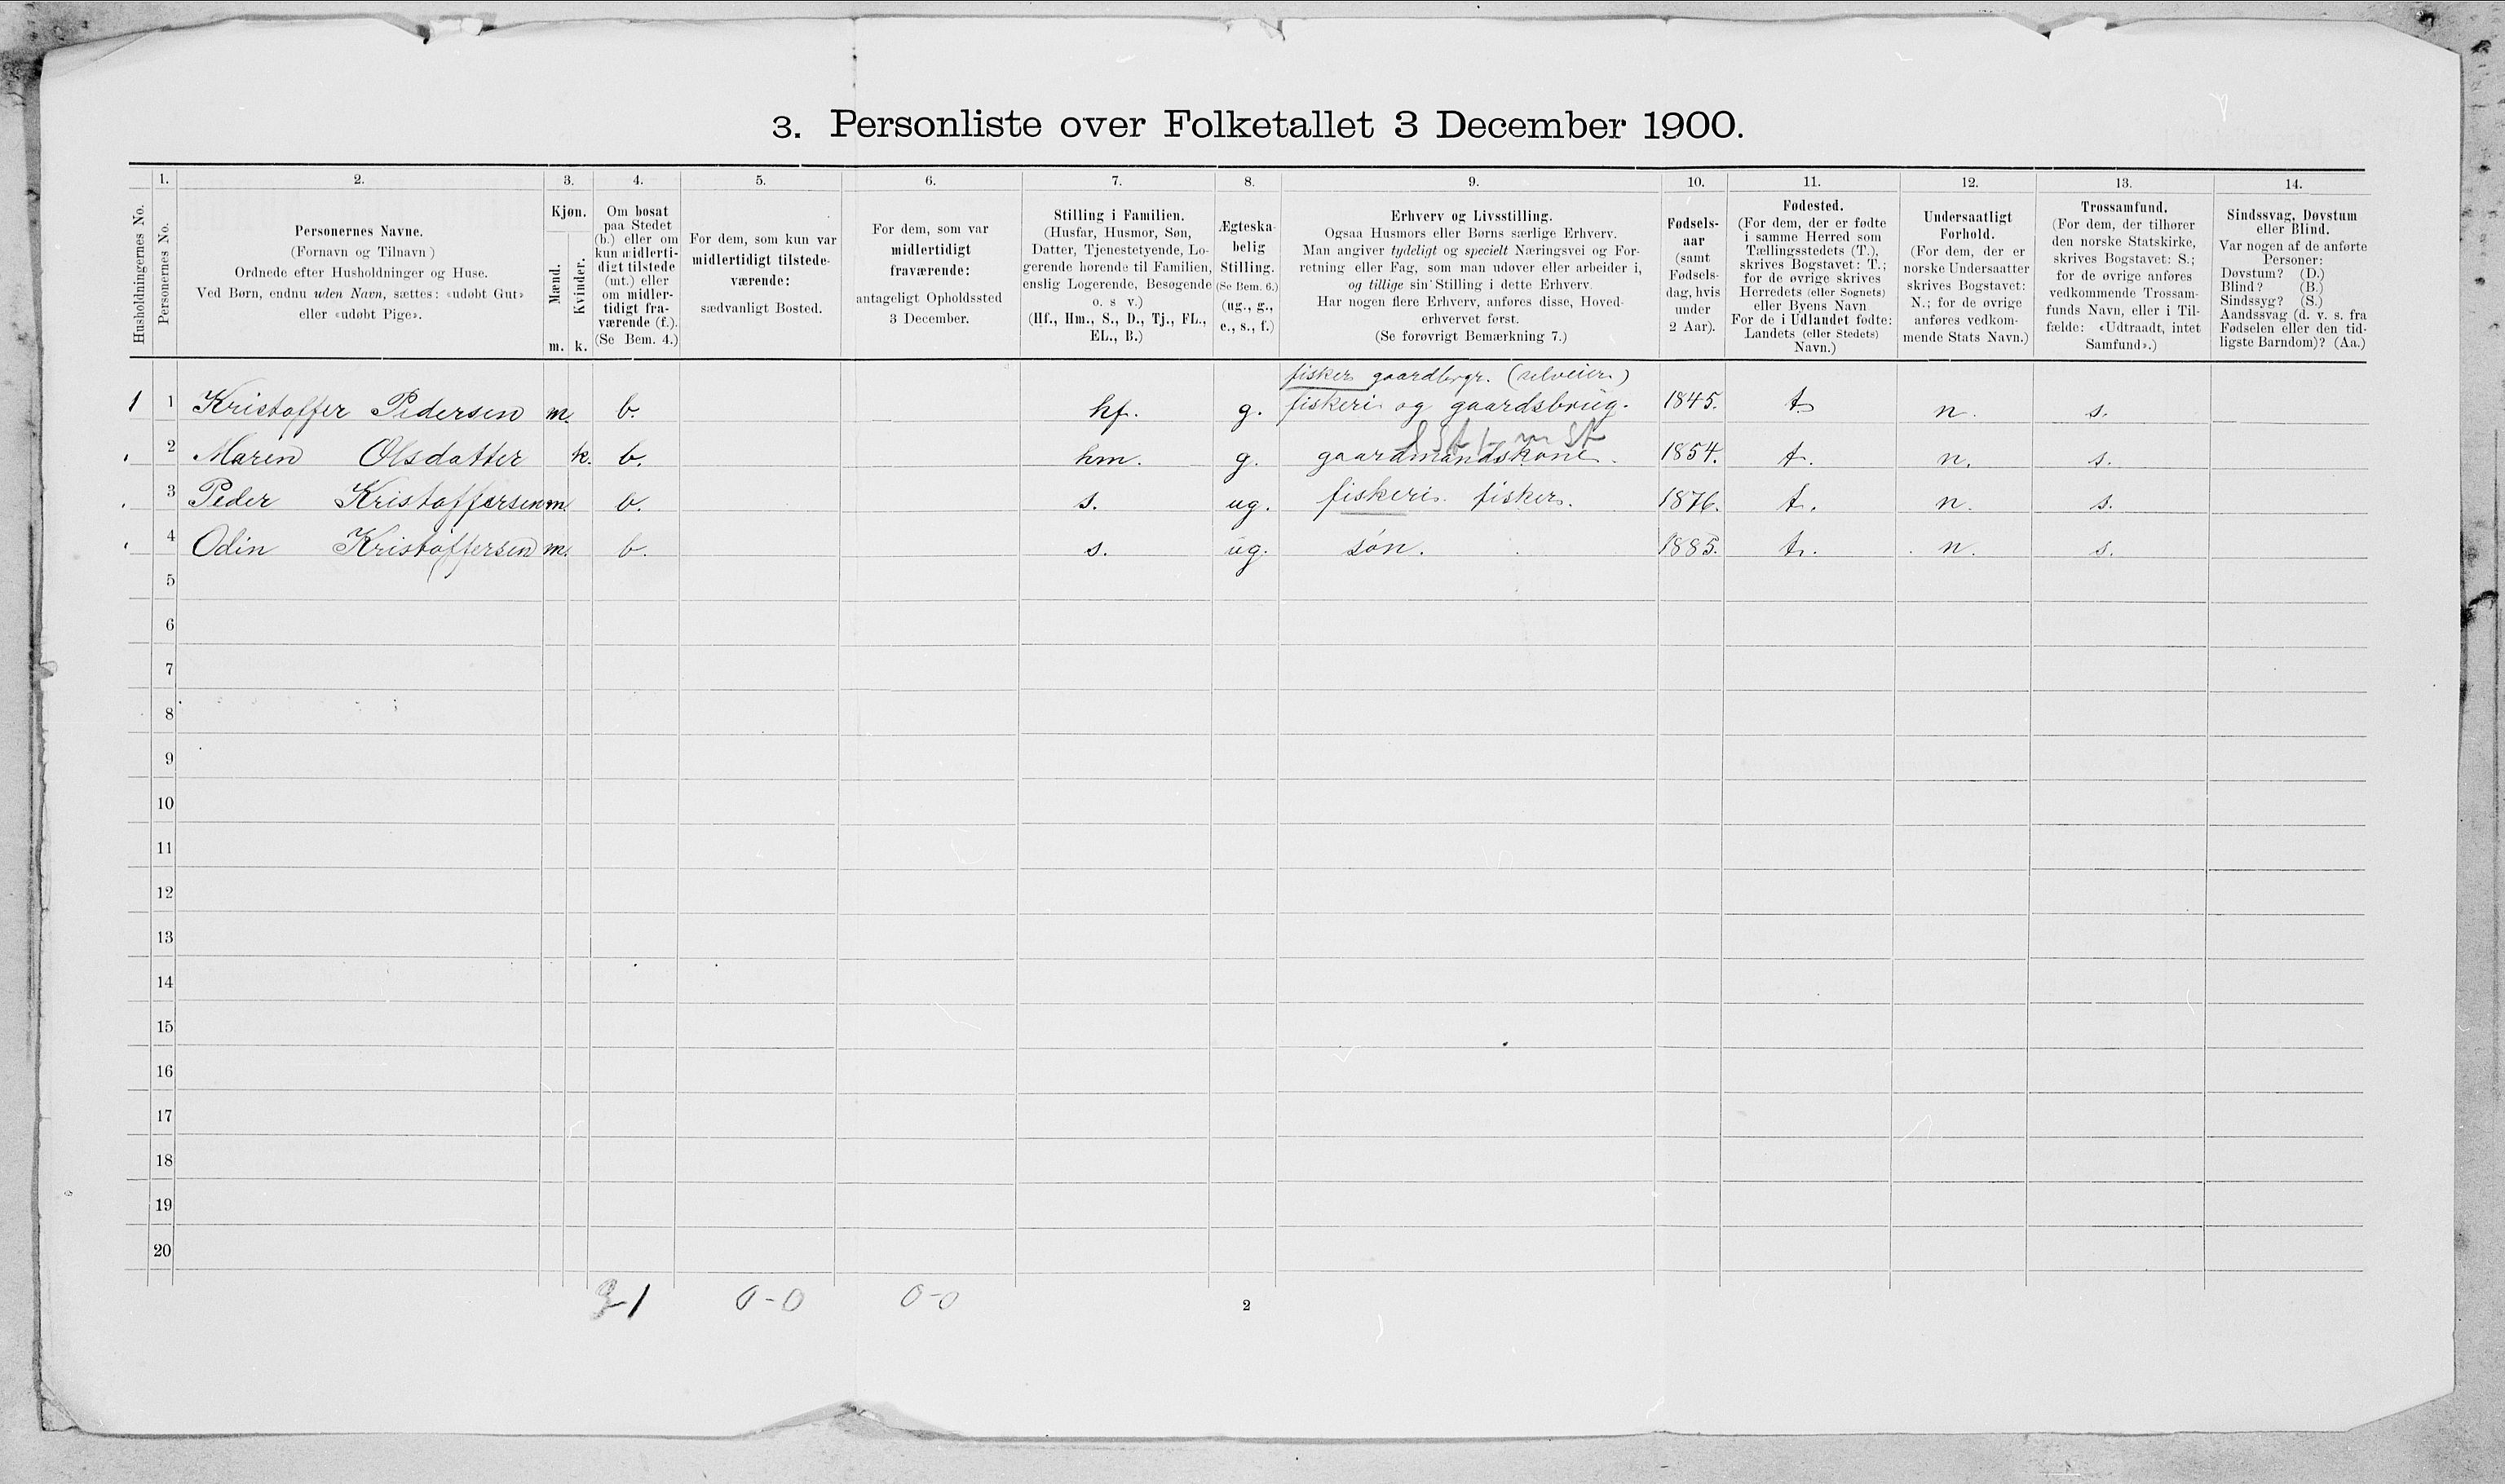 3. Personliste over Folketallet 3 December 1900.
Husholdningernes No.
1. Personernes No.
2. Personernes Navne.
(Fornavn og Tilnavn)
Ordnede efter Husholdninger og Huse.
Ved Børn, endnu uden Navn, sættes: «udøbt Gut»
eller «udøbt Pige».
3. Kjøn.
Mænd. Kvinder.
m. k.
4. Om bosat
paa Stedet
(b.) eller om
kun midlerti-
digt tilstede
(mt.) eller
om midler-
tidigt fra-
værende (f.).
(Se Bem. 4.)
5. For dem, som kun var
midlertidigt tilstede-
værende:
sædvanligt Bosted.
6. For dem, som var
midlertidigt
fraværende:
antageligt Opholdssted
3 December.
7. Stilling i Familien.
(Husfar, Husmor, Søn,
Datter, Tjenestetyende, Lo-
gerende hørende til Familien,
enslig Logerende, Besøgende
o. s v.)
(Hf., Hm., S., D., Tj., FL.,
EL., B.)
8. Ægteska-
belig
Stilling.
(Se Bem. 6.)
(ug., g.,
e., s., f.)
9. Erhverv og Livsstilling.
Ogsaa Husmors eller Børns særlige Erhverv.
Man angiver tydeligt og specielt Næringsvei og For-
retning eller Fag, som man udøver eller arbeider i,
og tillige sin Stilling i dette Erhverv.
Har nogen flere Erhverv, anføres disse, Hoved-
erhvervet først.
(Se forøvrigt Bemærkning 7.)
10. Fødsels-
aar
(samt
Fødsels-
dag, hvis
under
2 Aar).
11. Fødested.
(For dem, der er fødte
i samme Herred som
Tællingsstedets (T.),
skrives Bogstavet: T.;
for de øvrige skrives
Herredets (eller Sognets)
eller Byens Navn
For de i Udlandet fødte:
Landets (eller Stedets)
Navn.)
12. Undersaatligt
Forhold.
(For dem, der er
norske Undersaatter
skrives Bogstavet:
N.; for de øvrige
anføres vedkom-
mende Stats Navn.)
13. Trossamfund.
(For dem, der tilhører
den norske Statskirke,
skrives Bogstavet: S.;
for de øvrige anføres
vedkommende Trossam-
funds Navn, eller i Til-
fælde: «Udtraadt, intet
Samfund».)
14. Sindssvag, Døvstum
eller Blind.
Var nogen af de anførte
Personer:
Døvstum? (D.)
Blind? (B.)
Sindssyg? (S.)
Aandssvag (d. v. s. fra
Fødselen eller den tid-
ligste Barndom)? (Aa.)
fisker gaardbrgr. (selveier)
1 1 Kristoffer Pedersen m. b. hf. g. fiskeri og gaardsbrug. 1845. t. n. s.
2 Maren Olsdatter k. b. hm. g. gaardmandskone. 1854. t. n. s.
3 Peder Kristoffersen m. b. s. ug. fiskeri. fisker. 1876. t. n. s.
4 Odin Kristoffersen m. b. s. ug. søn. 1885. t. n. s.
5
6
7
8
9
10
11
12
13
14
15
16
17
18
19
20
3-1 0-0 0-0
2